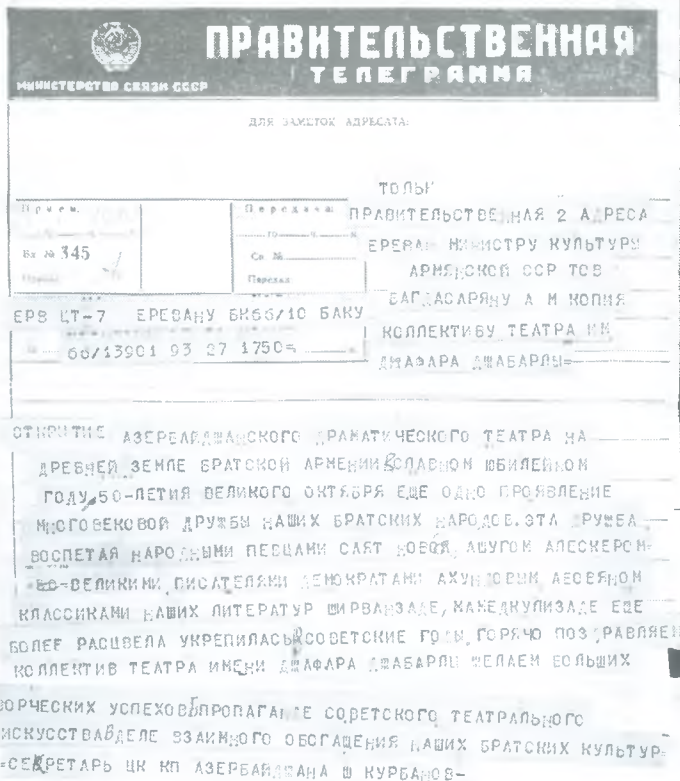 ПРАВИТЕЛЬСТВЕННАЯ
ТЕЛЕГРАММА
МИНИСТЕРСТВО СВЯЗИ СССР
ДЛЯ ЗАМЕТОК АДРЕСАТА:
ТОЛЬК
Прием:
Передача:
ПРАВИТЕЛЬСТВЕННАЯ 2 АДРЕСА
ЕРЕВАН МИНИСТРУ КУЛЬТУРЫ
Вх № 345
Св. №
АРМЯНСКОЙ ССР ТОВ
Передал:
БАГДАСАРЯНУ А М КОПИЯ
ЕРВ ЦТ-7 ЕРЕВАНУ БК66/10 БАКУ
КОЛЛЕКТИВУ ТЕАТРА ИМ
66/13901 93 27 1750=
ДЖАФАРА ДЖАБАРЛЫ=
ОТКРЫТИЕ АЗЕРБАЙДЖАНСКОГО ДРАМАТИЧЕСКОГО ТЕАТРА НА
ДРЕВНЕЙ ЗЕМЛЕ БРАТСКОЙ АРМЕНИИ В СЛАВНОМ ЮБИЛЕЙНОМ
ГОДУ 50-ЛЕТИЯ ВЕЛИКОГО ОКТЯБРЯ ЕЩЕ ОДНО ПРОЯВЛЕНИЕ
МНОГОВЕКОВОЙ ДРУЖБЫ НАШИХ БРАТСКИХ НАРОДОВ. ЭТА ДРУЖБА
ВОСПЕТАЯ НАРОДНЫМИ ПЕВЦАМИ САЯТ НОВОЙ, АШУГОМ АЛЕСКЕРОМ-
ВЕЛИКИМИ ПИСАТЕЛЯМИ ДЕМОКРАТАМИ АХУНДОВЫМ АБОВЯНОМ
КЛАССИКАМИ НАШИХ ЛИТЕРАТУР ШИРВАНЗАДЕ, МАМЕДКУЛИЗАДЕ ЕЩЕ
БОЛЕЕ РАСЦВЕЛА УКРЕПИЛАСЬ В СОВЕТСКИЕ ГОДЫ, ГОРЯЧО ПОЗДРАВЛЯЕМ
КОЛЛЕКТИВ ТЕАТРА ИМЕНИ ДЖАФАРА ДЖАБАРЛЫ ЖЕЛАЕМ БОЛЬШИХ
ОРЧЕСКИХ УСПЕХОВ В ПРОПАГАНДЕ СОВЕТСКОГО ТЕАТРАЛЬНОГО
ИСКУССТВА В ДЕЛЕ ВЗАИМНОГО ОБОГАЩЕНИЯ НАШИХ БРАТСКИХ КУЛЬТУР=
=СЕКРЕТАРЬ ЦК КП АЗЕРБАЙДЖАНА Ш КУРБАНОВ-